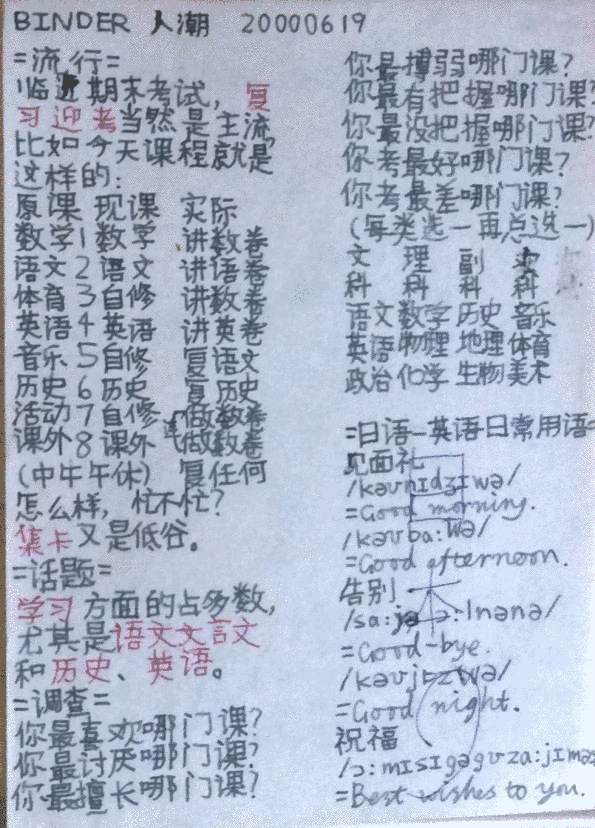 BINDER 人潮 20000619
=流行=
临近期末考试，复
习迎考当然是主流
比如今天课程就是
这样的：
原课 现课 实际
数学1数学 讲数卷
语文2语文 讲语卷
体育3自修 讲数卷
英语4英语 讲英卷
音乐5自修 复语文
历史6历史 复历史
活动7自修 做数卷
课外8课外 做数卷
(中午午休) 复任何
怎么样，忙不忙？
集卡又是低谷。
=话题=
学习方面的占多数，
尤其是语文文言文
和历史、英语。
=调查=
你最喜欢哪门课？
你最讨厌哪门课？
你最擅长哪门课？
你最搏弱哪门课？
你最有把握哪门课？
你最没把握哪门课？
你考最好哪门课？
你考最差哪门课？
(每类选一再总选一)
文 理 副
科 科 科 科
语文 数学 历史 音乐
英语 物理 地理 体育
政治 化学 生物 美术
=日语-英语日常用语=
见面礼
/kəʊnɪdʒɪwə/
=Good morning.
/kəʊba:wə/
=Good afternoon.
告别
=Good-bye.
=Good night.
祝福
=Best wishes to you.